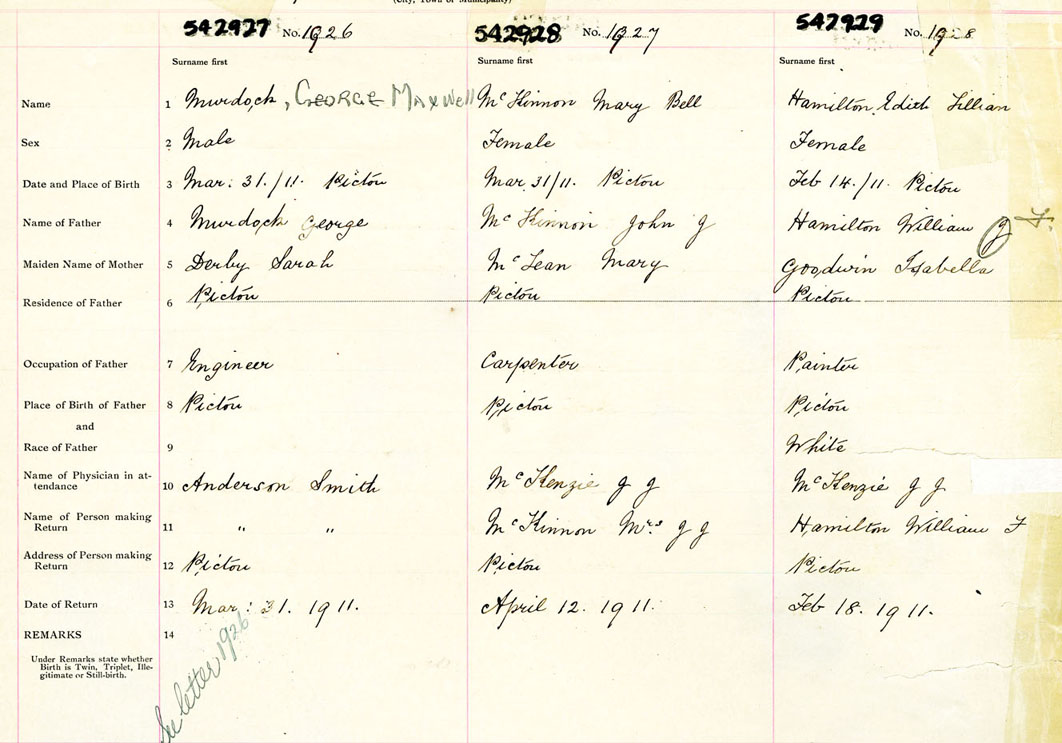 (City, Town or Municipality)
542927 No. 1926 542928 No. 1927 542929 No. 1928
Surname first Surname first Surname first
Name 1 Murdock, GEORGE MAXWell Mc Kinnon Mary Bell Hamilton Edith Lillian
Sex 2 Male Female Female
Date and Place of Birth 3 Mar: 31./11. Pictou Mar. 31/11. Pictou Feb 14./11. Pictou
Name of Father 4 Murdock George Mc Kinnon John J Hamilton William J F.
Maiden Name of Mother 5 Derby Sarah Mc Lean Mary Goodwin Isabella
Residence of Father 6 Pictou Pictou Pictou
Occupation of Father 7 Engineer Carpenter Painter
Place of Birth of Father 8 Pictou Pictou Pictou
and
Race of Father 9 White
Name of Physician in at-
tendance 10 Anderson Smith Mc Kenzie J J Mc Kenzie J J
Name of Person making
Return 11 " " Mc Kinnon Mrs J J Hamilton William F
Address of Person making
Return 12 Pictou Pictou Pictou
Date of Return 13 Mar: 31. 1911. April 12. 1911. Feb 18. 1911.
REMARKS 14
Under Remarks state whether
Birth is Twin, Triplet, Ille-
gitimate or Still-birth.
See letter 1926